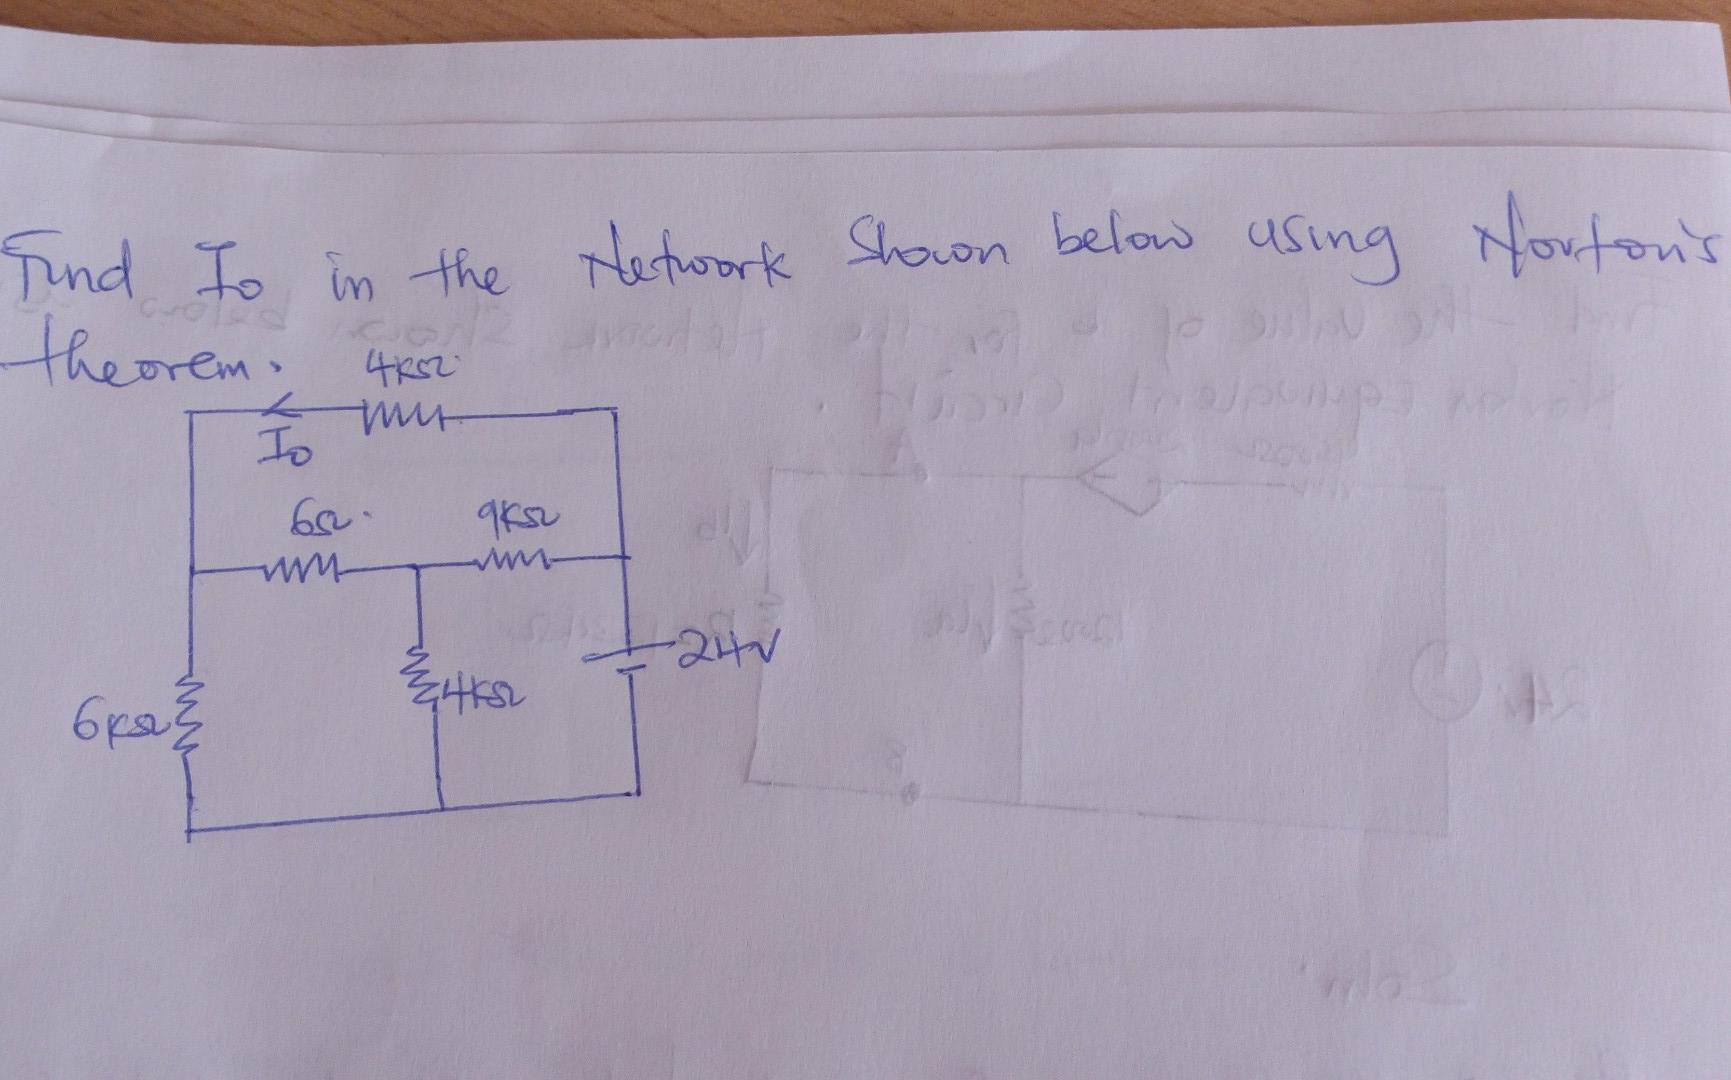 Find Io in the Network Shown below using Norton's
theorem.
4kΩ
Io
6Ω
9kΩ
24V
6kΩ
4kΩ